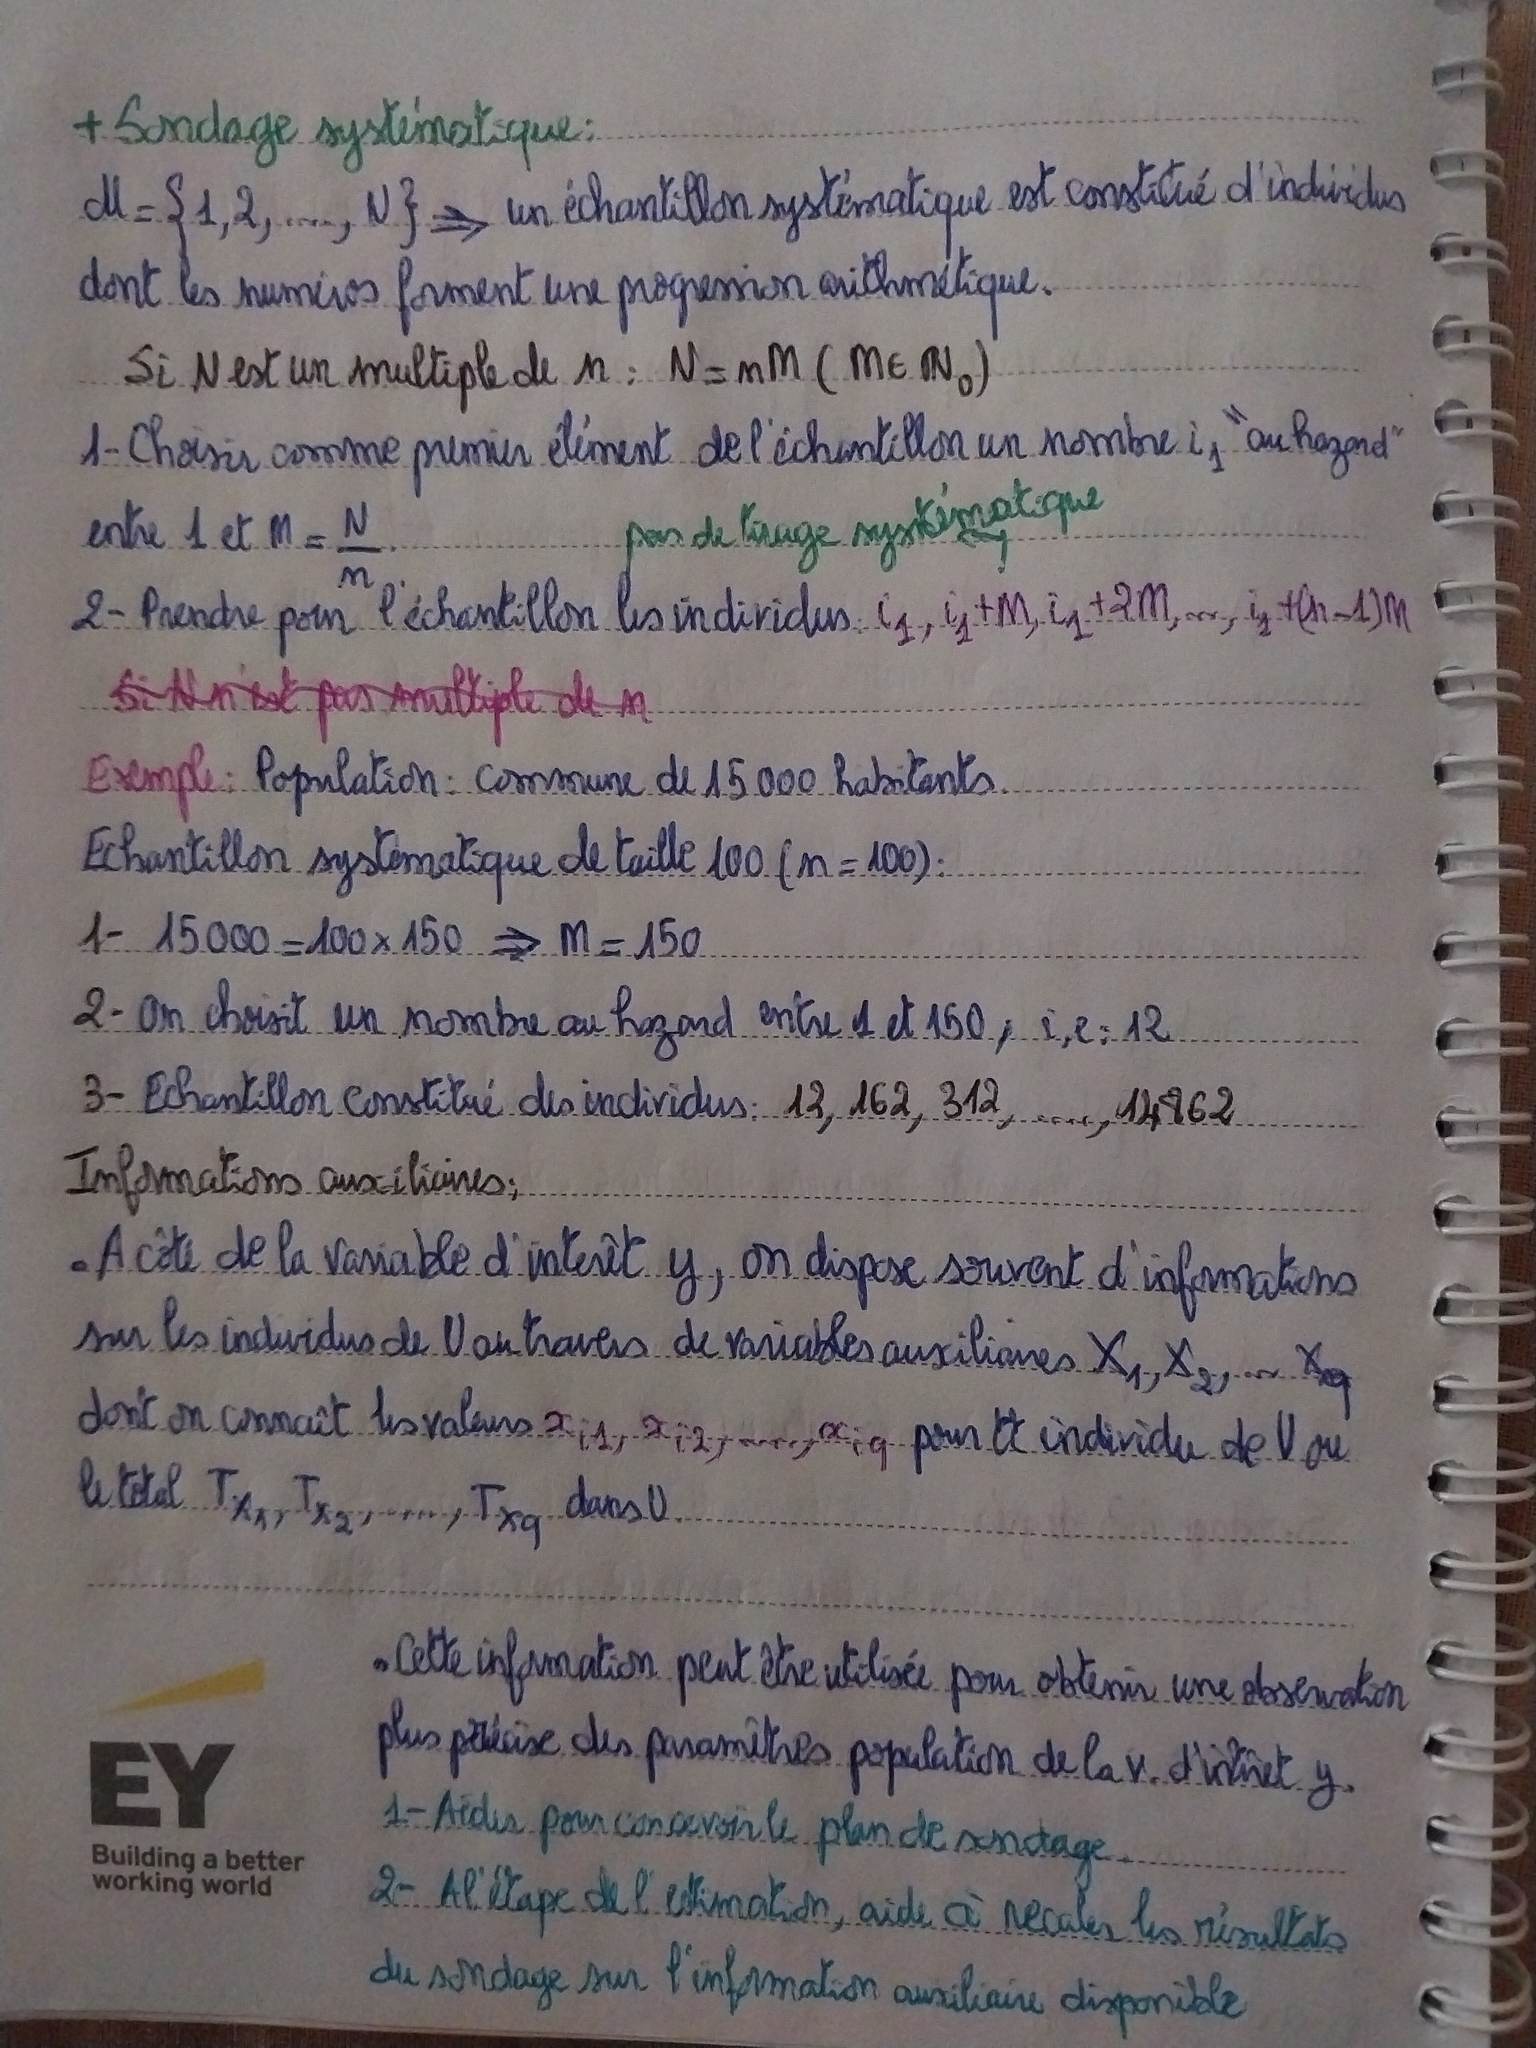 + Sondage systématique:
U = {1, 2, ...., N} ⇒ un échantillon systématique est constitué d'individus
dont les numéros forment une progression arithmétique.
Si N est un multiple de n : N = nM ( M ∈ ℕ₀)
1- Choisir comme premier élément de l'échantillon un nombre i₁ "au hazard"
entre 1 et M = N/n.
pas de tirage systématique
2- Prendre pour l'échantillon les individus: i₁, i₁+M, i₁+2M, ..., i₁+(n-1)M
Si N n'est pas multiple de n
Exemple: Population: commune de 15 000 habitants.
Echantillon systématique de taille 100 (n = 100):
1- 15 000 = 100 x 150 ⇒ M = 150
2- On choisit un nombre au hazard entre 1 et 150, i.e: 12
3- Echantillon constitué des individus: 12, 162, 312, ....., 14862
Informations auxiliaires:
. A côté de la variable d'interêt y, on dispose souvent d'informations
sur les individus de U au travers de variables auxiliaires X₁, X₂, ... Xq
dont on connaît les valeurs xi1, xi2, ...., xiq pour tt individu de U ou
le total Tx₁, Tx₂, ...., Txq dans U.
. Cette information peut être utilisée pour obtenir une observation
plus précise des paramêtres population de la v. d'intêret y.
1- Aider pour concevoir le plan de sondage.
2- A l'étape de l'estimation, aide à recaler les résultats
du sondage sur l'information auxiliaire disponible
EY
Building a better
working world